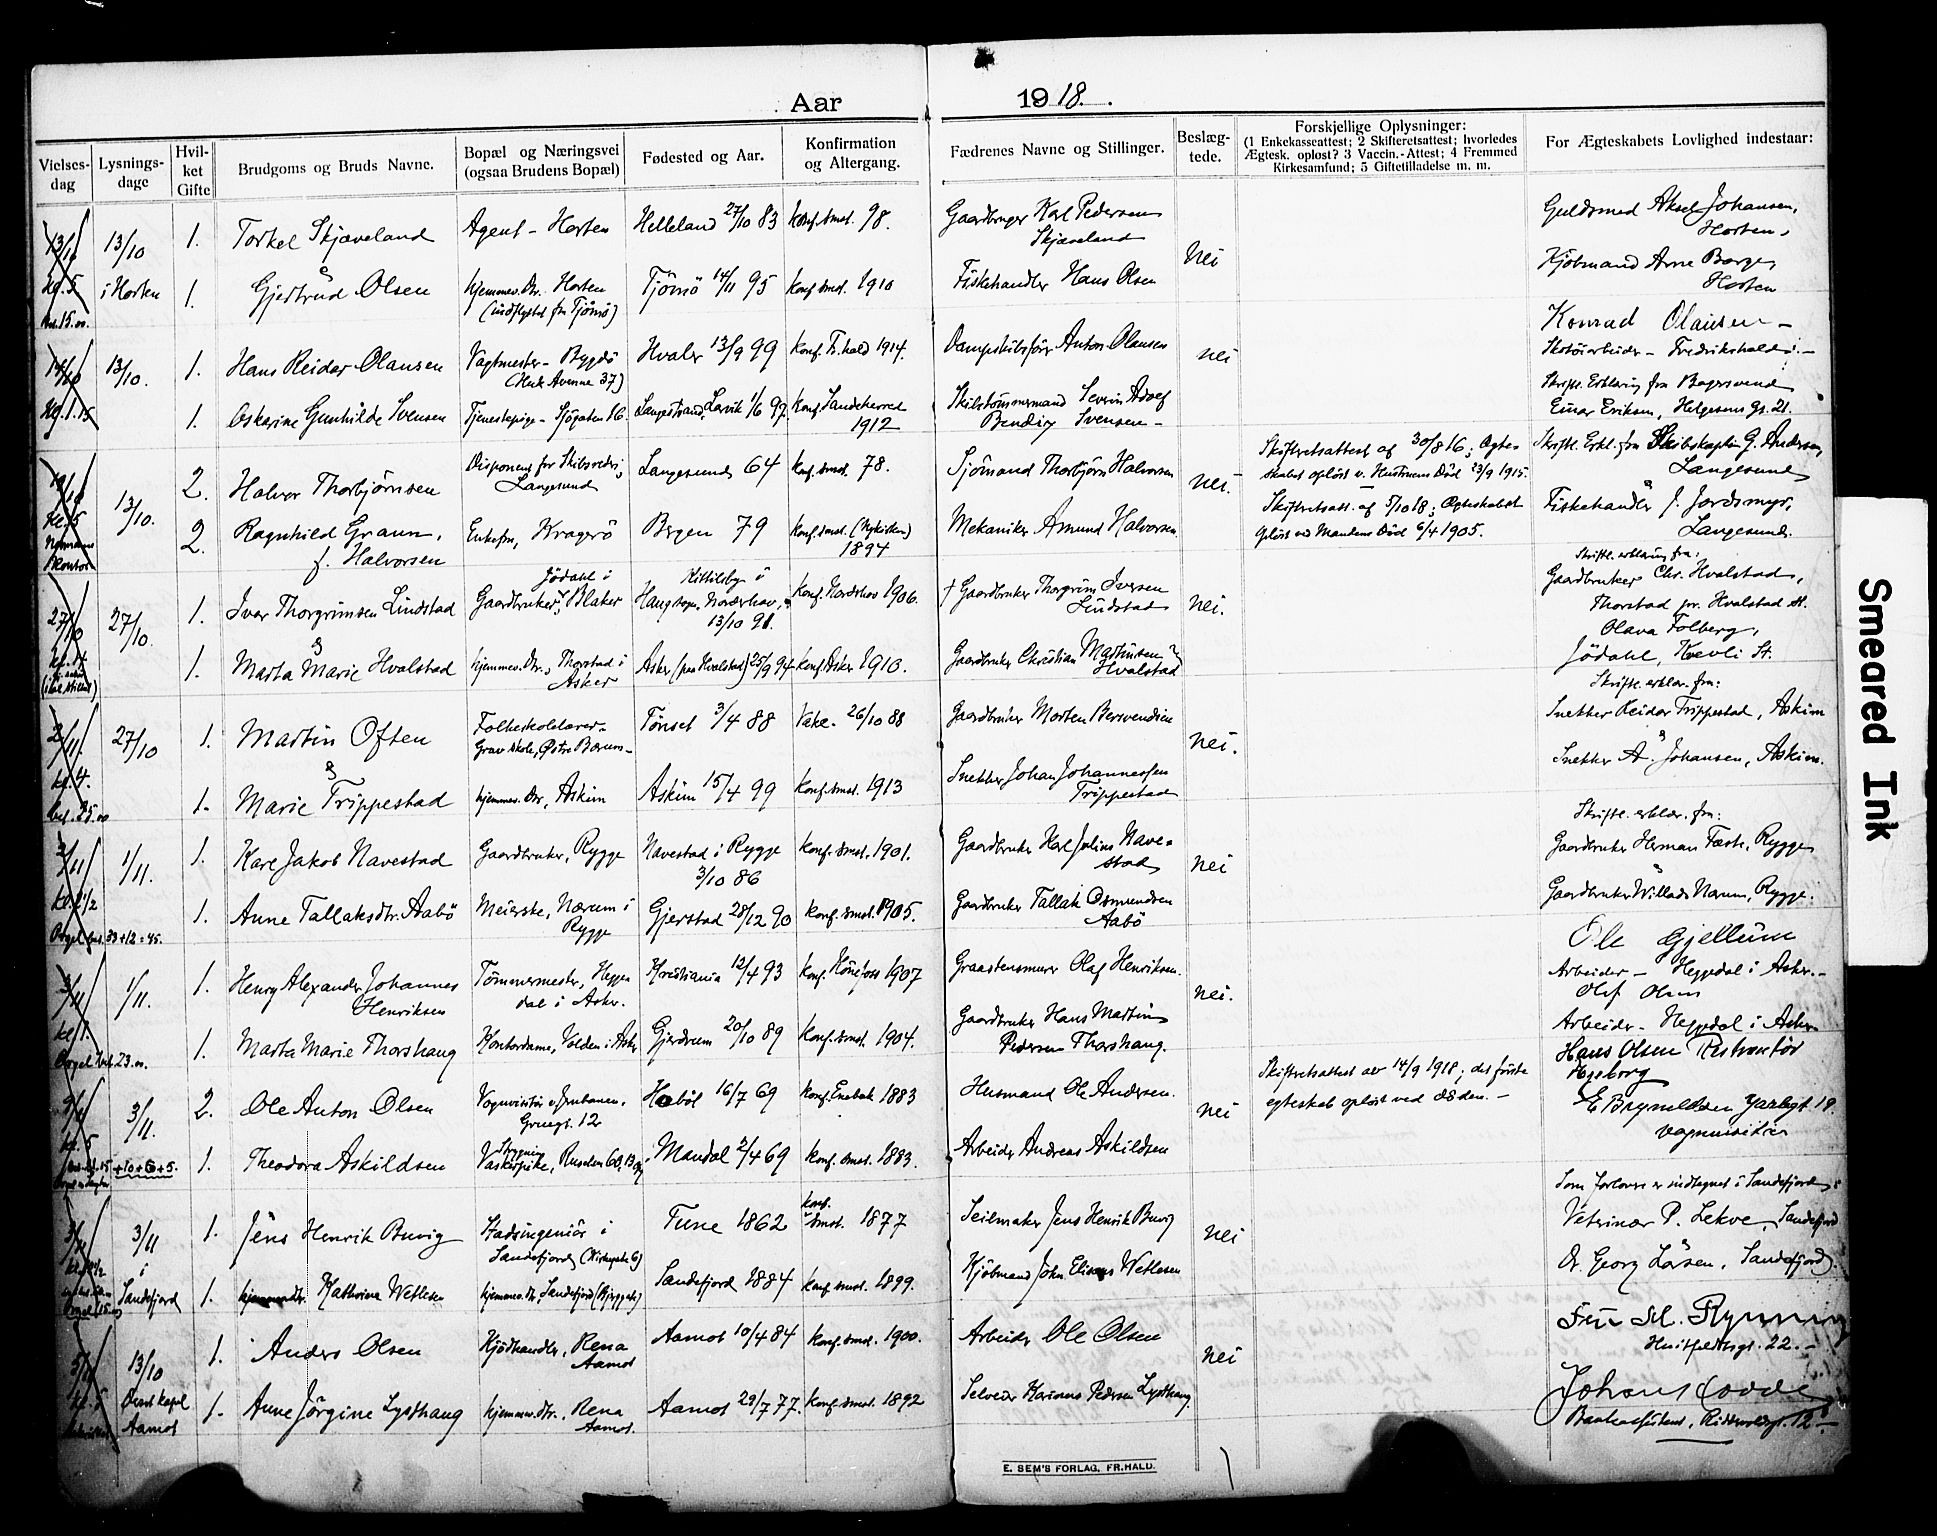 Aar 1918.
Vielses-dag
Lysnings-dage
Hvil-ket Gifte
Brudgoms og Bruds Navne.
Bopæl og Næringsvei (ogsaa Brudens Bopæl)
Fødested og Aar.
Konfirmation og Altergang.
Fædrenes Navne og Stillinger.
Beslæg-tede.
Forskjellige Oplysninger: (1 Enkekasseattest; 2 Skifteretsattest; hvorledes Ægtesk. opløst? 3 Vaccin.-Attest; 4 Fremmed Kirkesamfund; 5 Giftetilladelse m. m.
For Ægteskabets Lovlighed indestaar:
13/10 13/10 1. Torkel Skjæveland Agent - Horten Helleland 27/10 83 konf. smst. 98. Gaardbruger Karl Pedersen Skjæveland nei Guldsmed Aksel Johansen, Horten,
kl. 5 i Horten 1. Gjertrud Olsen hjemmev. Dtr. Horten (indflyttet fra Tjömö) Tjömö 14/11 95 konf. smst. 1910 Fiskehandler Hans Olsen Kjöbmand Arne Borge, Horten
13/10. 1. Hans Reidar Olausen Vagtmester - Bygdö (Huk Avenue 37) Hvaler 13/9 99 konf. Fr.hald 1914. Dampskibsförer Anton Olausen nei Konrad Olausen - Skotöiarbeider - Fredrikshald. -
kl. 1.15 1. Oskarine Gunhilde Svensen Tjenestepige - Sjögaten 16. Langestrand, Larvik 1/6 97. konf. Sandeherred 1912 Skibstömmermand Severin Adolf Bendix Svensen - Skriftl. Erklæring fra Bagersvend Einar Eriksen, Helgesens gt. 21.
13/10. 2. Halvor Thorbjörnsen Disponent for Skibsrederi, Langesund Langesund 64 konf. smst. 78. Sjömand Thorbjörn Halvorsen nei. Skifteretsattest af 30/8 16; Ægteskabet oplöst v. Hustruens Död 23/9 1915. Skriftl. Erkl. fra Skibskaptein G. Andersen, Langesund
kl. 5 2. Ragnhild Graum, f. Halvorsen Enkefru, Kragerö Bergen 79 konf. smst. (Nykirken) 1894 Mekaniker Amund Halvorsen. Skifteretsatt. af 5/10 18; Ægteskabet oplöst ved Mandens Död 6/4 1905. Fiskehandler J. Jordsmyr, Langesund.
27/10 27/10. 1. Ivar Thorgrimsen Lindstad Gaardbruker, Jödahl i Blaker Haugsbygd, Norderhov, 13/10 91. konf. Norderhov 1906. † Gaardbruker Thorgrim Iversen Lindstad nei. Skriftl. erklæring fra: Gaardbruker Chr. Hvalstad, Thorstad pr. Hvalstad st.
1. Marta Marie Hvalstad hjemmev. Dtr., Thorstad i Asker Asker (paa Hvalstad) 25/9 94 konf. Asker 1910. Gaardbruker Christian Martinsen Hvalstad Olava Folberg, Jödahl, Kævli St.
2/11 27/10 1. Martin Often Folkeskolelærer - Grav skole, Östre Bærum - Tönset 3/4 88 Vakc. 26/10 88 Gaardbruker Morten Bersvendsen nei. Skriftl. erklær. fra: Snekker Reidar Trippestad, Askim
kl. 4. 1. Marie Trippestad hjemmev. Dtr., Askim Askim 15/4 99 konf. smst. 1913 Snekker Johan Johannessen Trippestad Snekker A. Johansen, Askim.
1/11. 1. Karl Jakob Navestad Gaardbruker, Rygge Navestad i Rygge 3/10 86 konf. smst. 1901. Gaardbruker Karl Julius Navestad nei Skriftl. erklær. fra: Gaardbruker Herman Faste, Rygge
1. Anne Tallaksdtr. Aabö Meierske, Nærum i Rygge Gjerstad 28/12 90 konf. smst. 1905. Gaardbruker Tallak Osmundsen Aabö Gaardbruker Willads Nærum, Rygge.
Orgel bet. 33 + 12 = 45.
3/11 1/11. 1. Henry Alexander Johannes Henriksen Tömmermester, Heggedal i Asker. Kristiania 12/4 93 konf. Hönefoss 1907 Graastensmurer Olaf Henriksen. nei. Ole Gjellum Arbeider - Heggedal i Asker. -
kl. 1. 1. Marta Marie Thorshaug Kontordame, Volden i Asker Gjerdrum 20/10 89 konf. smst. 1904. Gaardbruker Hans Martin Pedersen Thorshaug. Olaf Olsen Arbeider - Heggedal i Asker
3/11. 2. Ole Anton Olsen Vognvisitör v. Jernbanen. 12 Hobøl 16/7 69 konf. Enebak 1883 Husmand Ole Andersen. nei Skifteretsattest av 14/9 1918; det förste egteskab oplöst ved döden. - Hans Olsen
kl. 5 +10+6+5. 1. Theodora Askildsen Mandal 2/4 69 konf. smst. 1883. Arbeider Andreas Askildsen E Brynildsen vognvisitör
3/11 3/11 i Sandefjord 1. Jens Henrik Buvig Stadsingeniör i Sandefjord (Kirkegata 6) Tune 1862 konf. smst. 1877 Seilmaker Jens Henrik Buvig nei Som forlovere er indtegnet i Sandefjord: Veterinær P. Lekve, Sandefjord
1. Kathrine Wetlesen hjemmev. Dtr., Sandefjord Sandefjord 1884 konf. smst. 1899. Kjöbmand John Elisæus Wetlesen Dr. Georg Larsen, Sandefjord.
13/10 Deset kapel Aamot 1. Anders Olsen Kjödhandler, Rena Aamot Aamot 10/4 84 konf. smst. 1900. Arbeider Ole Olsen nei Huitfeldtsgt. 22. -
kl. 5 1. Anne Jörgine Lysthaug hjemmev. dtr., Rena Aamot. Aamot 29/7 77. konf. smst. 1892 Selveier Pedersen Lysthaug
E. SEM'S FORLAG, FR.HALD.
Smeared Ink